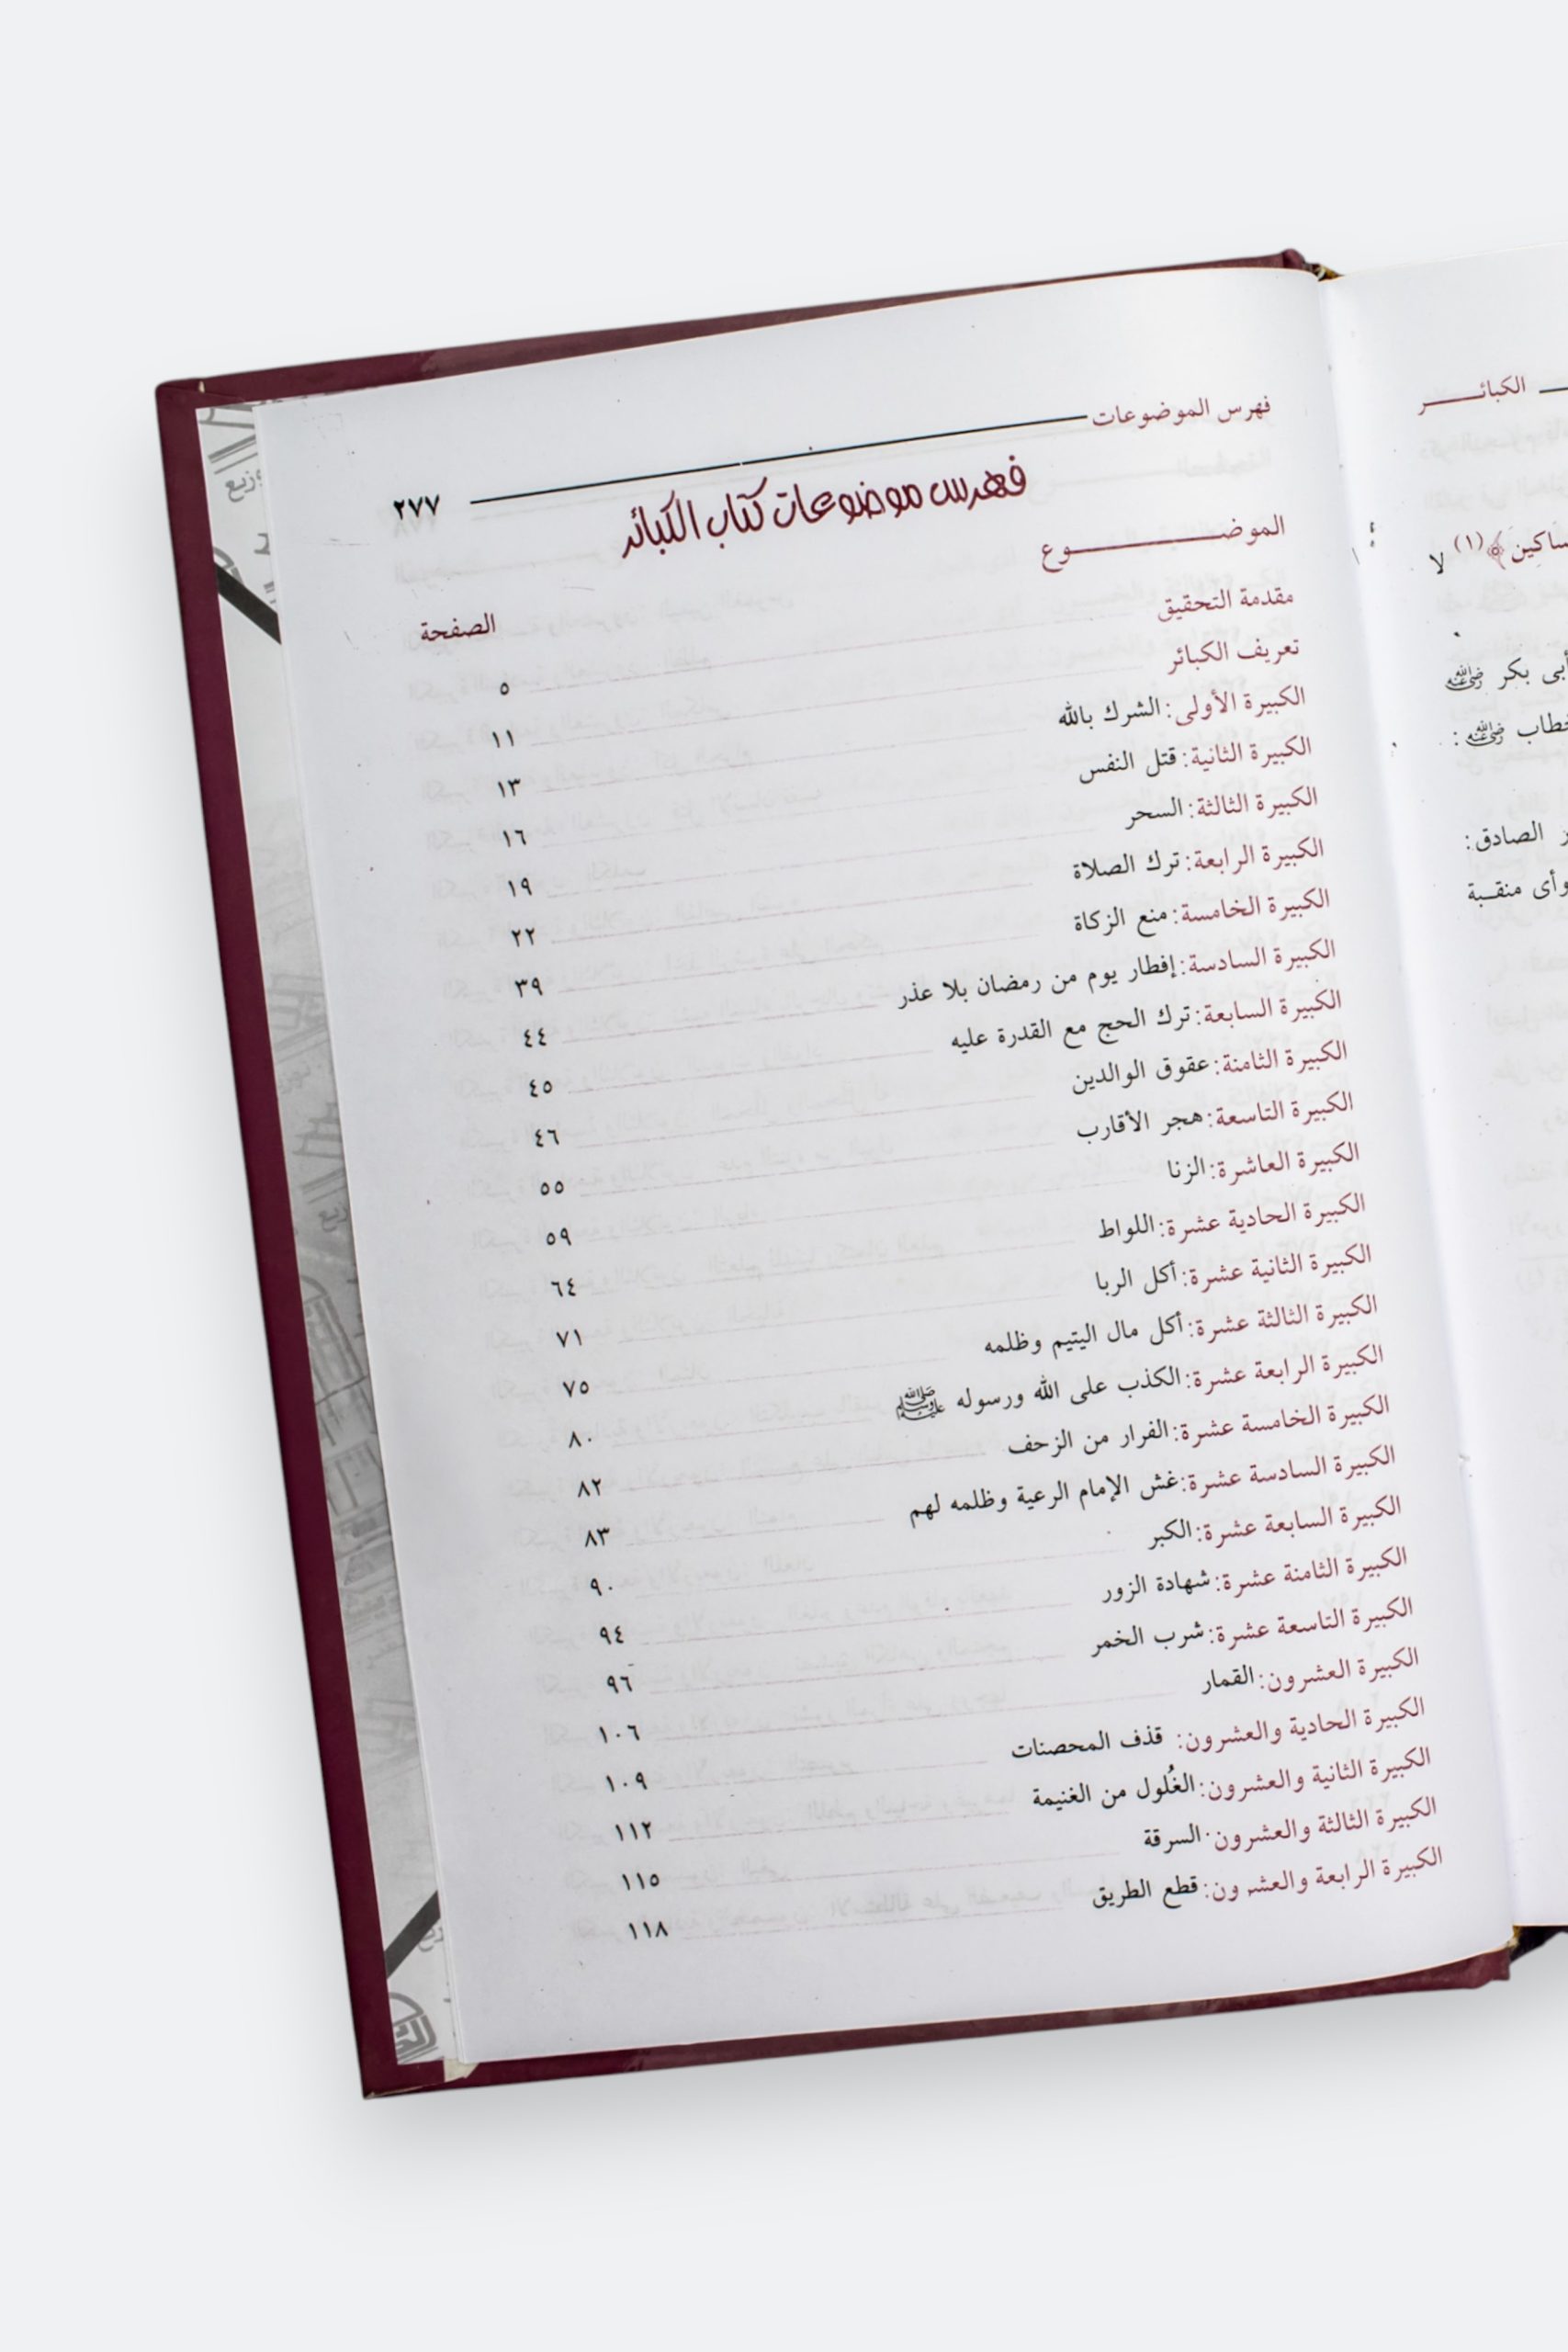 فهرس الموضوعات ٢٧٧
فهرس موضوعات كتاب الكبائر
الموضـــــــــوع الصفحة
مقدمة التحقيق ٥
تعريف الكبائر ١١
الكبيرة الأولى: الشرك بالله ١٣
الكبيرة الثانية: قتل النفس ١٦
الكبيرة الثالثة: السحر ١٩
الكبيرة الرابعة: ترك الصلاة ٢٢
الكبيرة الخامسة: منع الزكاة ٣٩
الكبيرة السادسة: إفطار يوم من رمضان بلا عذر ٤٤
الكبيرة السابعة: ترك الحج مع القدرة عليه ٤٥
الكبيرة الثامنة: عقوق الوالدين ٤٦
الكبيرة التاسعة: هجر الأقارب ٥٥
الكبيرة العاشرة: الزنا ٥٩
الكبيرة الحادية عشرة: اللواط ٦٤
الكبيرة الثانية عشرة: أكل الربا ٧١
الكبيرة الثالثة عشرة: أكل مال اليتيم وظلمه ٧٥
الكبيرة الرابعة عشرة: الكذب على الله ورسوله ﷺ ٨٠
الكبيرة الخامسة عشرة: الفرار من الزحف ٨٢
الكبيرة السادسة عشرة: غش الإمام الرعية وظلمه لهم ٨٣
الكبيرة السابعة عشرة: الكبر ٩٠
الكبيرة الثامنة عشرة: شهادة الزور ٩٤
الكبيرة التاسعة عشرة: شرب الخمر ٩٦
الكبيرة العشرون: القمار ١٠٦
الكبيرة الحادية والعشرون: قذف المحصنات ١٠٩
الكبيرة الثانية والعشرون: الغُلول من الغنيمة ١١٢
الكبيرة الثالثة والعشرون: السرقة ١١٥
الكبيرة الرابعة والعشرون: قطع الطريق ١١٨
الكبائـــــر
(١) لا
بكر رضي الله عنه
رضي الله عنه:
الصادق:
وأى منقبة